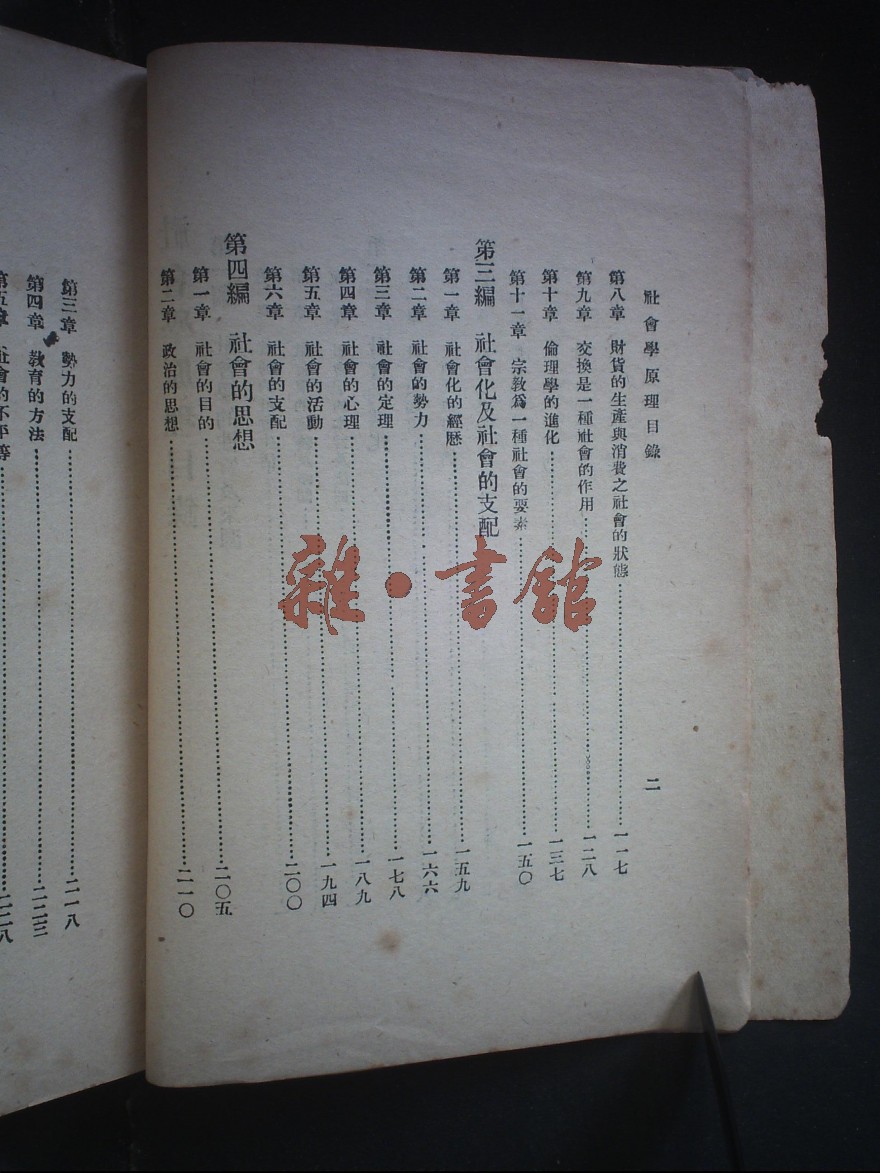 社會學原理目錄
二
第八章 財貨的生產與消費之社會的狀態……一一七
第九章 交換是一種社會的作用……一二八
第十章 倫理學的進化……一三七
第十一章 宗教爲一種社會的要素……一五〇
第三編 社會化及社會的支配
第一章 社會化的經歷……一五九
第二章 社會的勢力……一六六
第三章 社會的定理……一七八
第四章 社會的心理……一八九
第五章 社會的活動……一九四
第六章 社會的支配……二〇〇
第四編 社會的思想
第一章 社會的目的……二〇五
第二章 政治的思想……二一〇
第三章 勢力的支配……二一八
第四章 教育的方法……二二三
第五章 社會的不平等……二二八
雜·書館